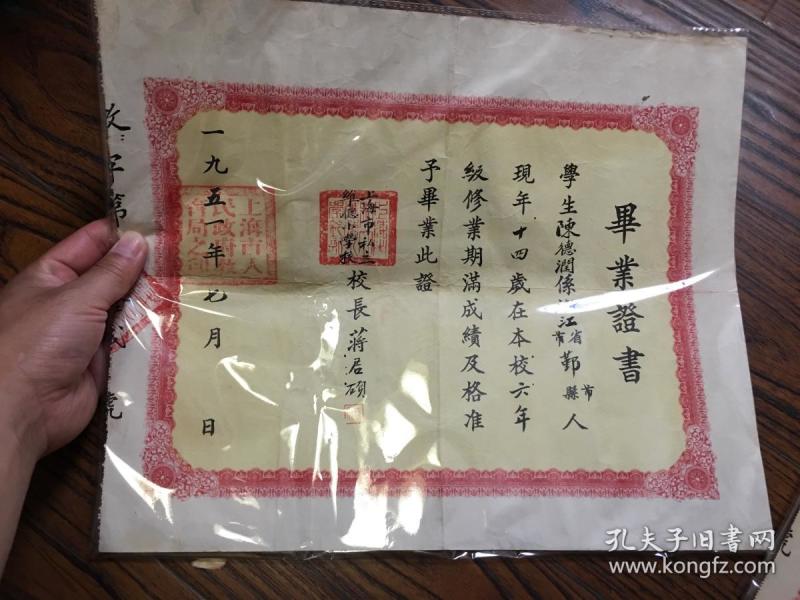 畢業證書
學生陳德潤係浙江省市鄞縣市人
現年十四歲在本校六年
級修業期滿成績及格准
予畢業此證
上海市私立
維德小學校
校長蔣君碩
一九五一年七月 日
上海市人
民政府教
育局之印
字第 號
孔夫子旧书网
www.kongfz.com